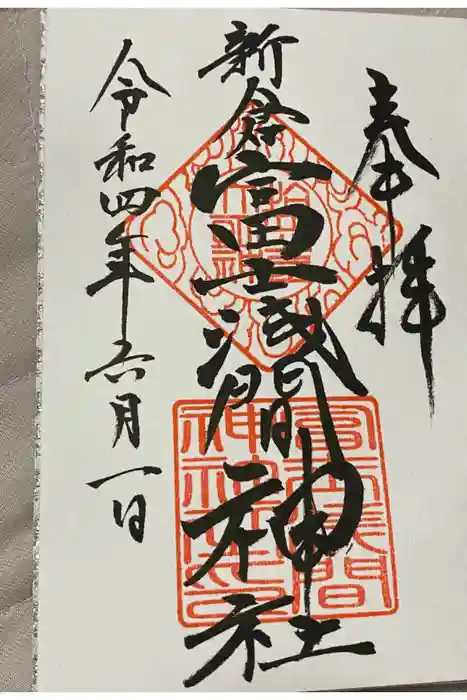 奉拝
新倉富士浅間神社
令和四年六月一日